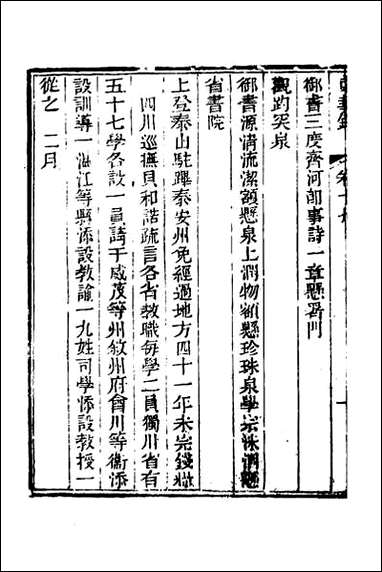 東華錄 卷十九
御書三度齊河卽事詩一章懸署門
觀趵突泉
御書源淸流潔額懸泉上潤物額懸珍珠泉學宗洙泗懸
省書院
上登泰山駐蹕泰安州免經過地方四十一年未完錢糧
四川巡撫貝和諾疏言各省教職每學二員獨川省有
五十七學各設一員請于威茂等州敘州府會川等衞添
設訓導一湛江等縣添設教諭一九姓司學添設教授一
從之 二月